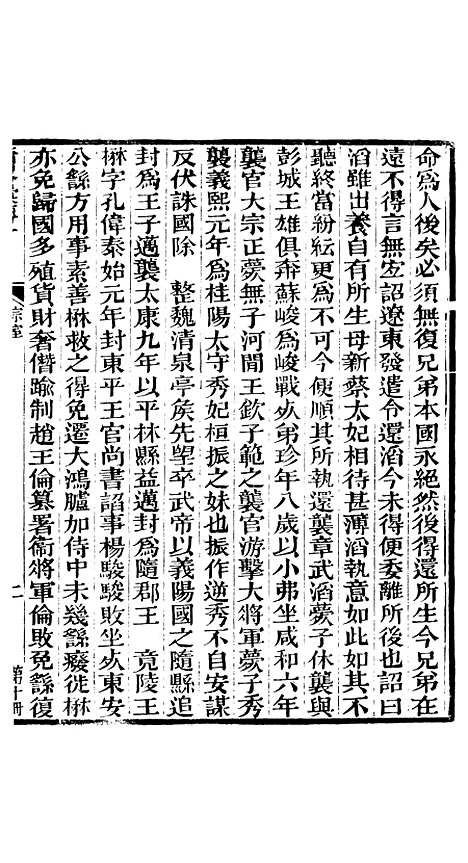 命爲人後矣必須無復兄弟本國永絕然後得還所生今兄弟在
遠不得言無宏詔遼東發遣令還滔今未得便委離所後也詔曰
滔雖出養自有所生母新蔡太妃相待甚薄滔執意如此如其不
聽終當紛紜更爲不可今便順其所執還襲章武滔薨子休襲與
彭城王雄俱奔蘇峻爲峻戰歿弟珍年八歲以小弗坐咸和六年
襲官大宗正薨無子河閒王欽子範之襲官游擊大將軍薨子秀
襲義熙元年爲桂陽太守秀妃桓振之妹也振作逆秀不自安謀
反伏誅國除　整魏清泉亭矦先望卒武帝以義陽國之隨縣追
封爲王子邁襲太康九年以平林縣益邁封爲隨郡王　竟陵王
楙字孔偉泰始元年封東平王官尚書諂事楊駿駿敗坐歿東安
公繇方用事素善楙救之得免遷大鴻臚加侍中未幾繇癈徙楙
亦免歸國多殖貨財奢僭踰制趙王倫篡署衞將軍倫敗免繇復
宗室
二
第十冊